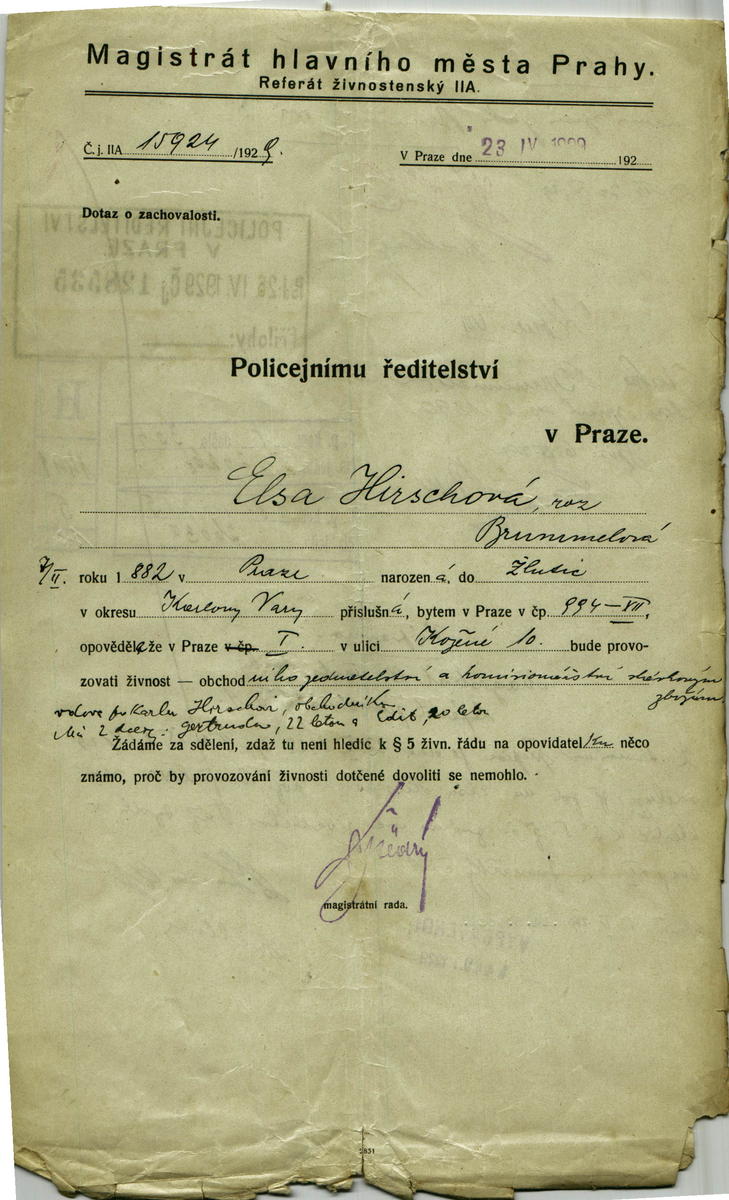 Magistrát hlavního města Prahy.
Referát živnostenský IIA.
Č. j. IIA 15924 /1929.
V Praze dne 23 IV 1929 192
Dotaz o zachovalosti.
POLICEJNÍ ŘEDITELSTVÍ
V PRAZE
26 IV. 1929 Čj 128535
Přílohy:
Policejnímu ředitelství
v Praze.
Elsa Hirschová, roz
Brummelová
7/II. roku 1882 v Praze narozená, do Žlutic
v okresu Karlovy Vary příslušná, bytem v Praze v čp. 994-VII,
opověděla, že v Praze v čp. I. v ulici Kožné 10. bude provo-
zovati živnost — obchodního jednatelství a komisionářství
zbožím
vdova po Karlu Hirschovi, obchodníku
Má 2 dcery: Gertrudu, 22 letou a Edit 20 letou
Žádáme za sdělení, zdaž tu není hledíc k § 5 živn. řádu na opovídatelku něco
známo, proč by provozování živnosti dotčené dovoliti se nemohlo.
magistrátní rada.
2831